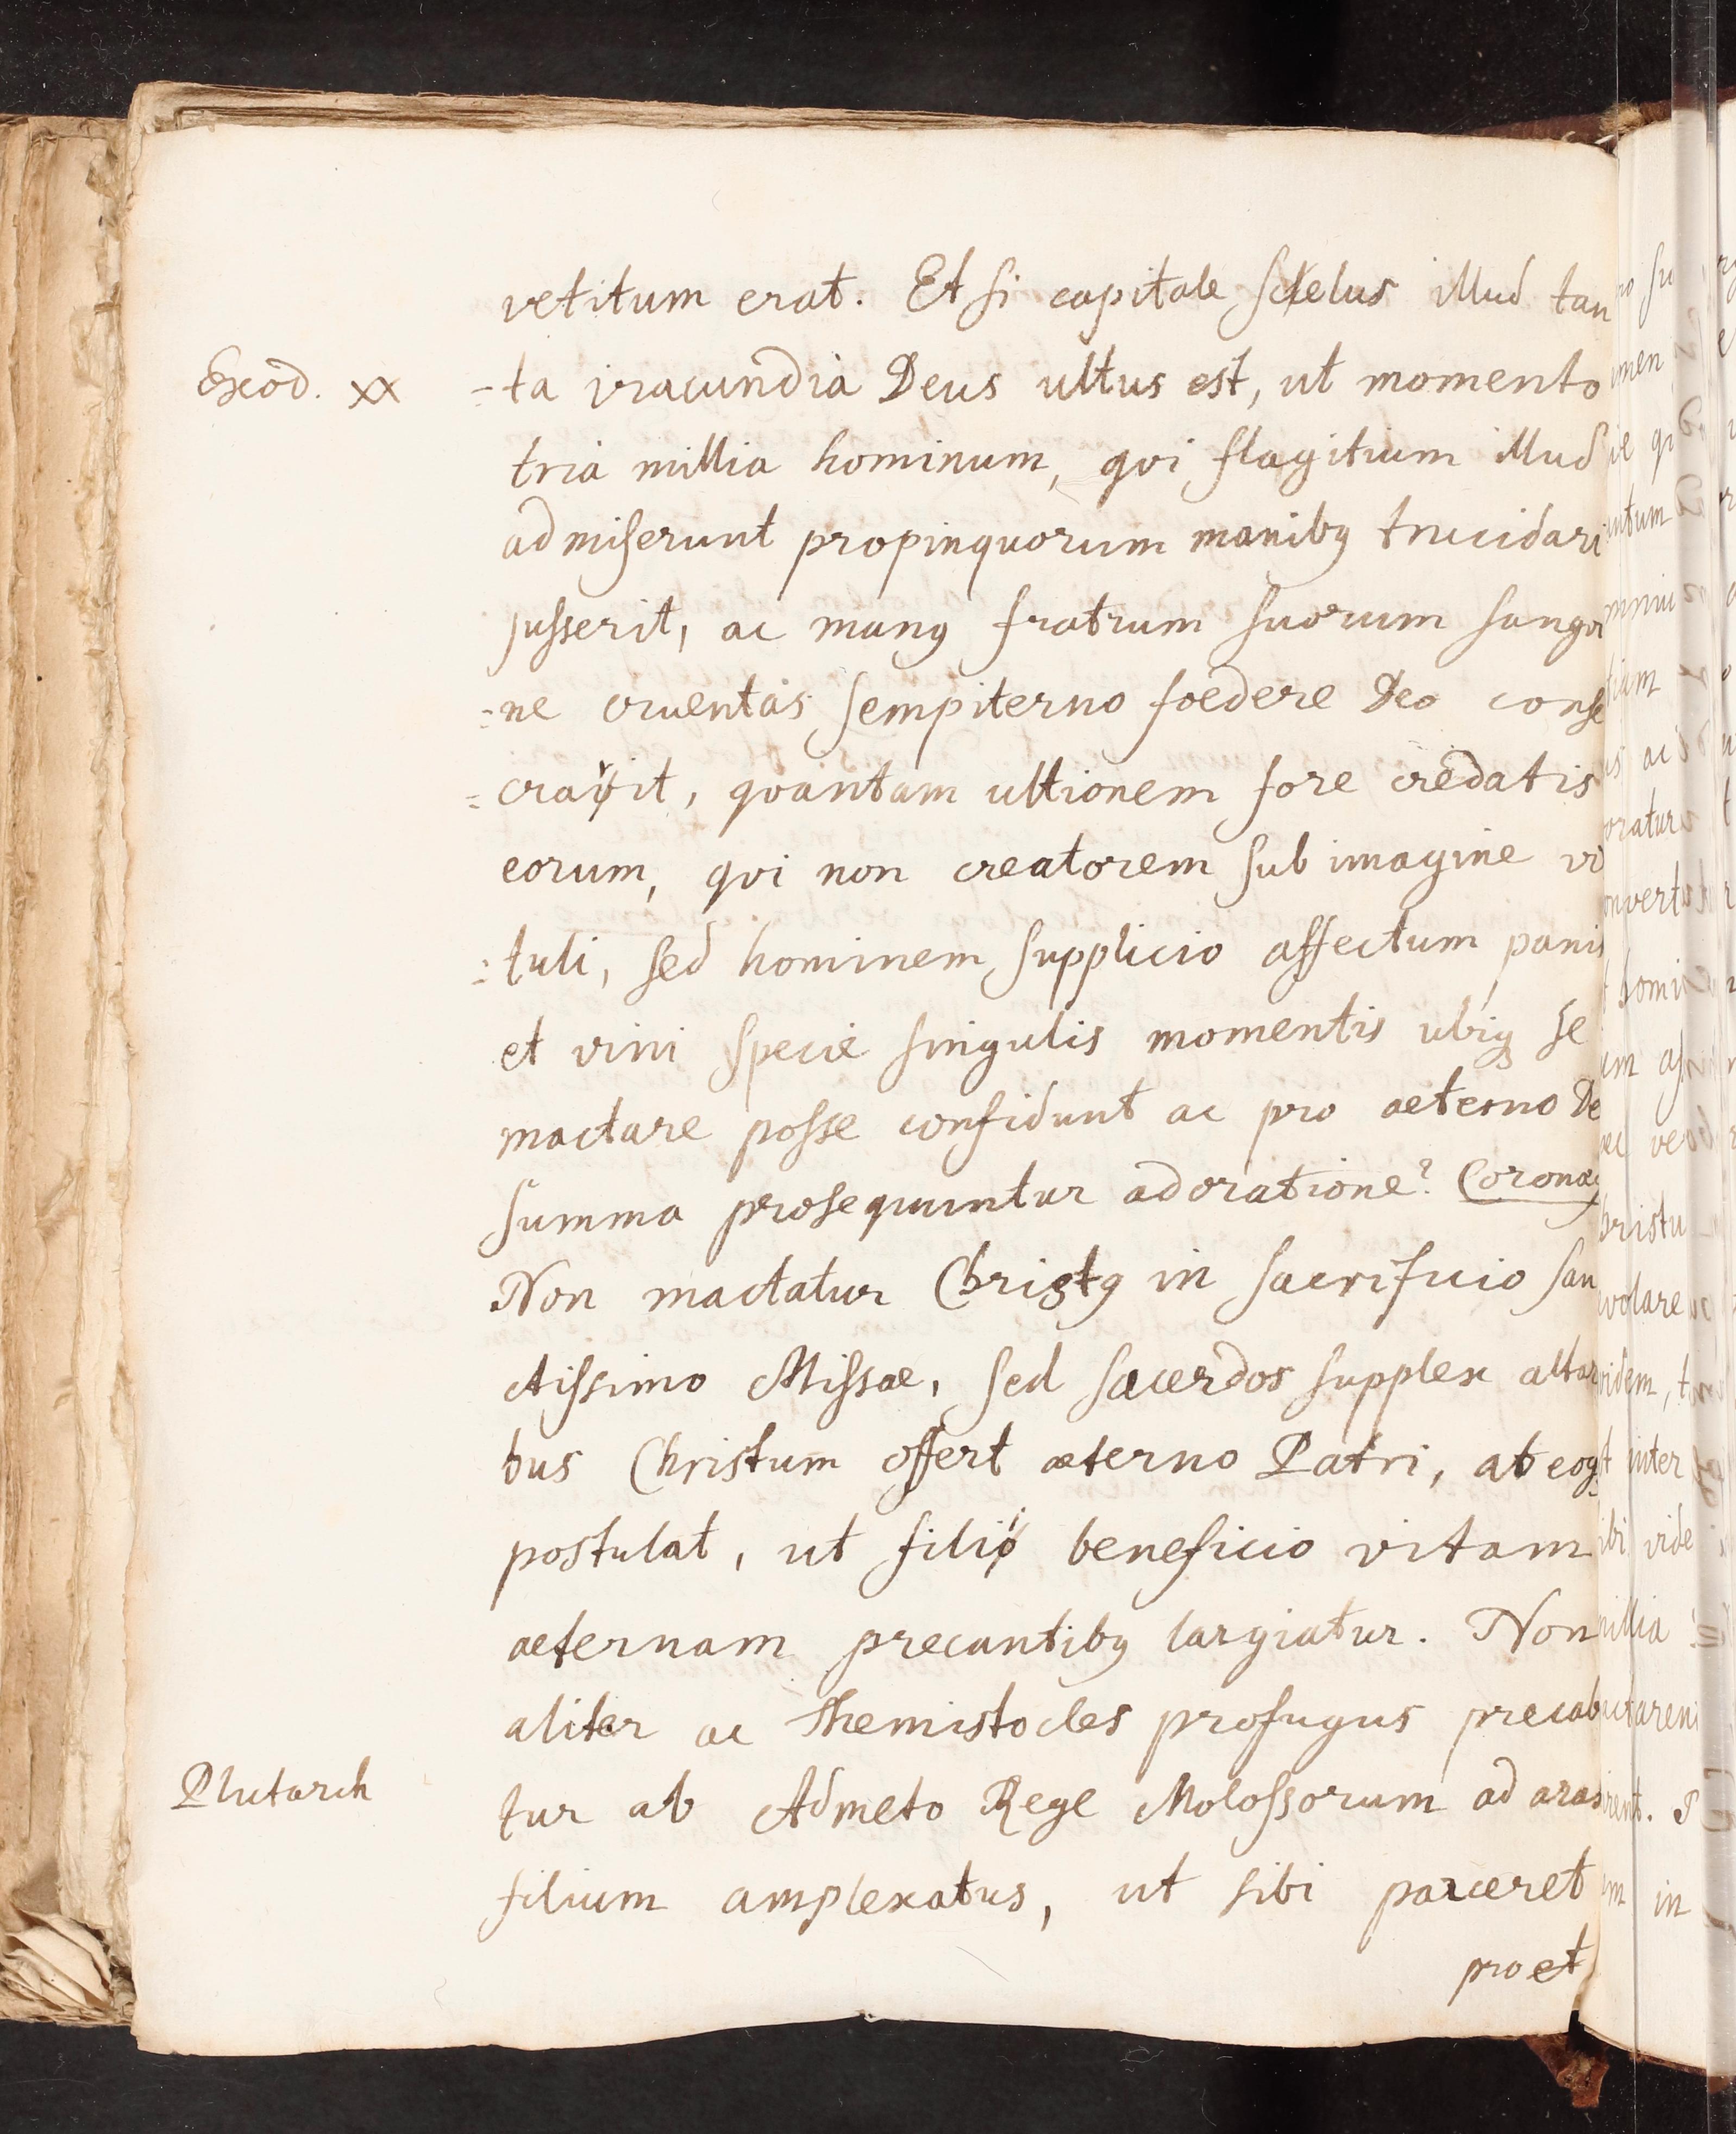 vetitum erat. Et si capitale scelus illud tan
Exod. XX
=ta iracundia Deus ultus est, ut momento
tria millia hominum, qvi flagitium illud
admiserunt propinquorum manibꝯ trucidari
jusserit, ac manꝯ fratrum suorum sangvi
=ne cruentas sempiterno foedere Deo conse
=cravit, qvantam ultionem fore credatis
eorum, qvi non creatorem sub imagine vi
=tuli, sed hominem supplicio affectum panis
et vini specie singulis momentis ubiqꝫ se
mactare posse confidunt ac pro aeterno De
summa prosequuntur adoratione? Coronæꝯ
Non mactatur Christꝯ in sacrificio san
ctissimo Missæ, sed sacerdos supplex altar
bus Christum offert æterno Patri, ab eoqꝫ
postulat, ut filii beneficio vitam
aeternam precantibꝯ largiatur. Non
aliter ac Themistocles profugus precab
Plutarch
tur ab Admeto Rege Molossorum ad aras
filium amplexatus, ut sibi parceret
pro et